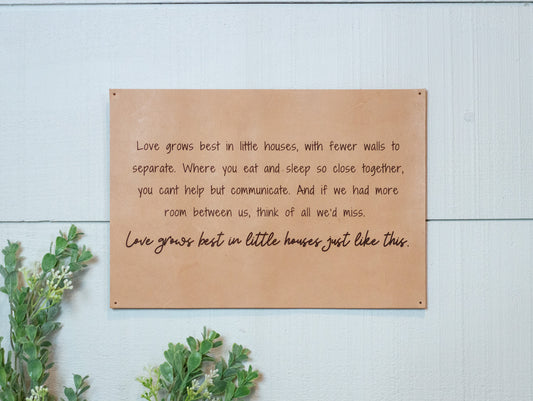 Love grows best in little houses, with fewer walls to
separate. Where you eat and sleep so close together,
you cant help but communicate. And if we had more
room between us, think of all we'd miss.
Love grows best in little houses just like this.